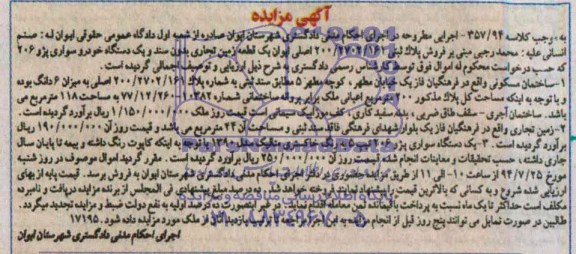 آگهی مزایده
به موجب کلاسه ۳۵۷/۹۴- اجرایی مطروحه در اجرای احکام مدنی دادگستری شهرستان ایوان صادره از شعبه اول دادگاه عمومی حقوقی ایوان له: صنم
علیه: محمد رجبی مبنی بر فروش پلاک ثبتی ۲۰۰/۲۷۰۲/۱۶۱ اصلی ایوان یک قطعه زمین تجاری بدون سند و یک دستگاه خودرو سواری پژو ۲۰۶
که حسب درخواست محکوم له اموال فوق توسط کارشناس رسمی دادگستری به شرح ذیل ارزیابی و توصیف اجمالی گردیده است.
۱-ساختمان مسکونی واقع در فرهنگیان فاز یک خیابان مطهر، کوچه مطهر ۵ مطابق سند ثبتی به شماره پلاک ۲۰۰/۲۷۰۲/۱۶۱ اصلی به میزان ۶ دانگ بوده
و با توجه به اینکه مساحت کل پلاک مذکور ۲۰۰ مترمربع اعیانی ملک برابر پروانه ساختمانی شماره ۱۳۸۲-۷۷/۱۲/۲۶ به مساحت ۱۱۸ مترمربع می
باشد. ساختمان آجری- سقف طاق ضربی، بدنه سفید کاری، کف موزاییک سیمانی است قیمت روز ملک ۱/۱۵۰/۰۰۰/۰۰۰ ریال برآورد گردیده است.
۲-زمین تجاری واقع در فرهنگیان فاز یک بلوار شهدای فرهنگی فاقد سند ثبتی و مساحت آن ۲۴ مترمربع می باشد و قیمت روز آن ۱۹۰/۰۰۰/۰۰۰ ریال
برآورد گردیده است. ۳-یک دستگاه سواری پژو ۲۰۶ تیپ رنگ خاکستری متالیک مدل با توجه به اینکه کاپوت رنگ داشته و بیمه تا پایان سال
جاری داشته، حسب تحقیقات و معاینات انجام شده قیمت روز آن ۲۵۰/۰۰۰/۰۰۰ ریال برآورد گردیده است. مقرر گردید اموال موصوف در روز شنبه
۹۴/۷/۲۵ از ساعت ۱۰- الی ۱۱ از طریق مزایده حضوری در دفتر اجرای احکام مدنی دادگستری شهرستان ایوان به فروش برسد. قیمت پایه از بهای
ارزیابی شده شروع و به کسانی که بالاترین قیمت را پیشنهاد نمایند فروخته خواهد شد. ده درصد مبلغ پیشنهادی فی المجلس از برنده مزایده دریافت و نامبرده
مکلف است حداکثر تا یک ماه نسبت به پرداخت باقیمانده ثمن معامله اقدام نماید. در غیر اینصورت ده درصد اولیه به نفع دولت ضبط و مزایده تجدید میگردد.
طالبین در صورت تمایل می توانند پنج روز قبل از انجام مزایده به این اجرا مراجعه تا ترتیب بازدید آنان از ملک مورد مزایده داده شود. ۱۷۱۹۵
اجرای احکام مدنی دادگستری شهرستان ایوان